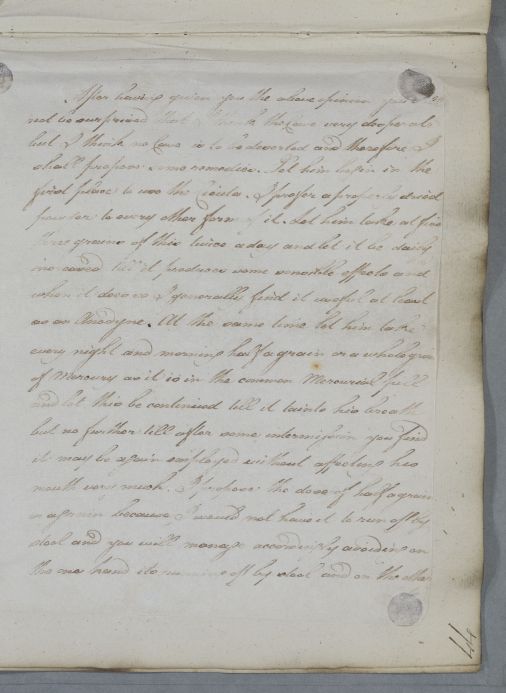 After having given you the above opinion you
not be surprised that I think the Case very desperate
but I think no Case is to be deserted and therefore I
shall propose some remedies. Let him begin in the
first place to use the Cicuta. I prefer a properly dried
powder to every other form of it. Let him take at first
three grains of this twice a day and let it be daily
increased till it produces some sensible effects and
when it does so I generally find it useful at least
as an Anodyne. At the same time let him take
every night and morning half a grain or a whole grain
of Mercury as it is in the common Mercurial pill
and let this be continued till it taints his breath
but no further till after some intermission you find
it may be again employed without affecting his
mouth very much. I propose the dose of half a grain
or a grain because I would not have it to run off by
stool and you will manage accordingly avoiding on
the one hand its running off by stool and on the other
44